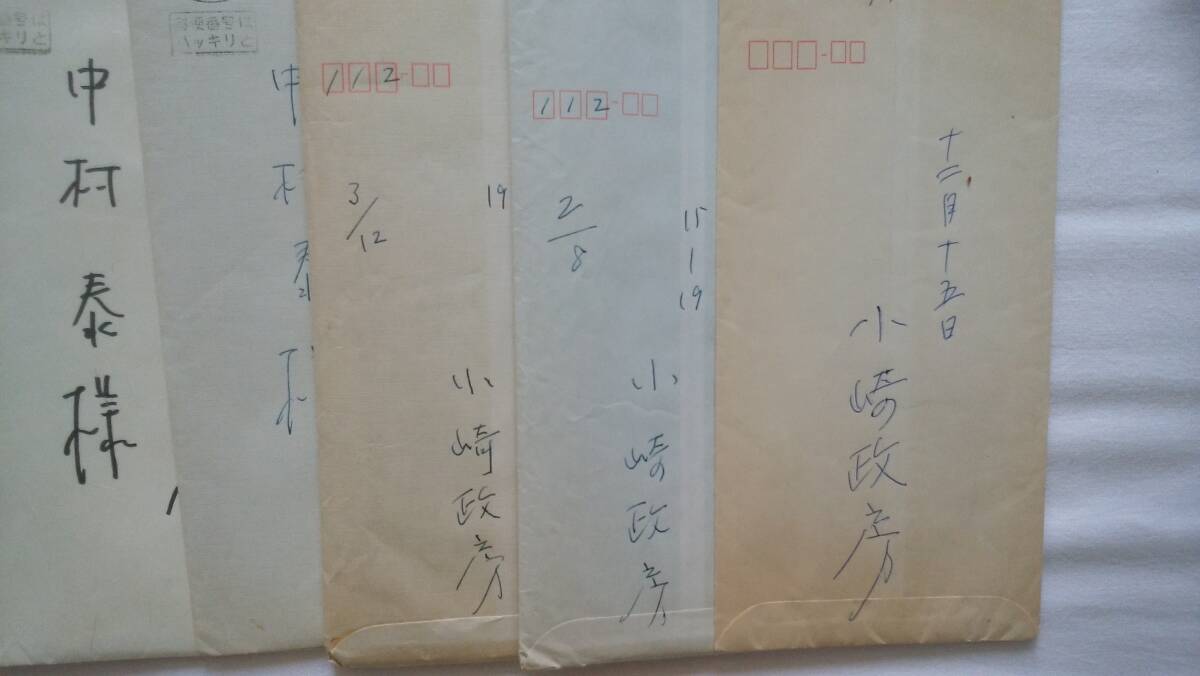 号は
キリと
中村泰様
郵便番号は
ハッキリと
中村泰様
112
3/12
19
小崎政房
112
2/8
15
1
19
小崎政房
十二月十五日
小崎政房